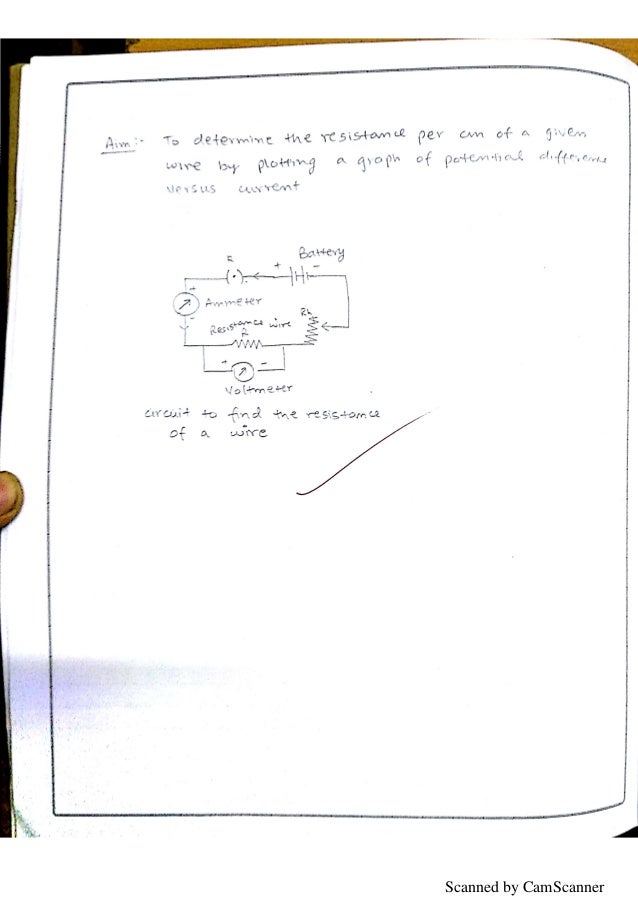 Aim:- To determine the resistance per cm of a given
wire by plotting a graph of potential difference
versus current
Battery
K
+ -
+
Ammeter
-
Rh
Resistance wire
R
+ -
Voltmeter
circuit to find the resistance
of a wire
Scanned by CamScanner